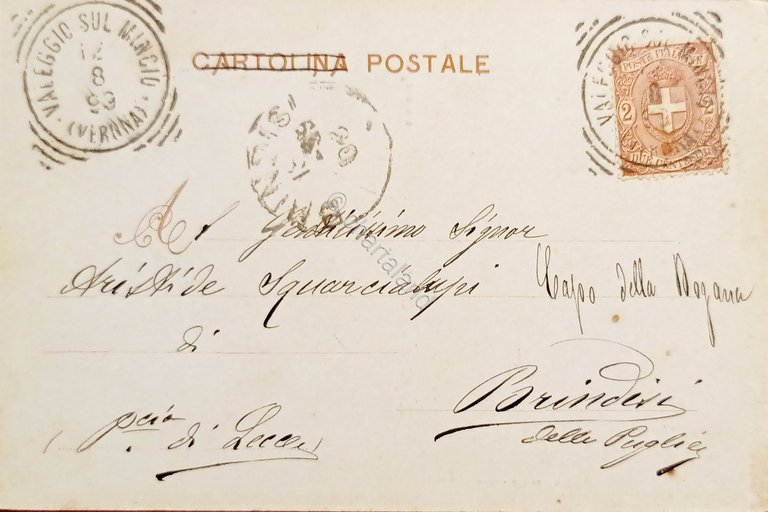 VALEGGIO SUL MINCIO
8
99
(VERONA)
CARTOLINA POSTALE
VALEGGIO SUL MINCIO
POSTE ITALIANE
2 2
BRINDISI
Al Gentilissimo Signor
Aristide Squarcialupi Capo della Dogana
di
Brindisi
(pcia. di Lecce) delle Puglie